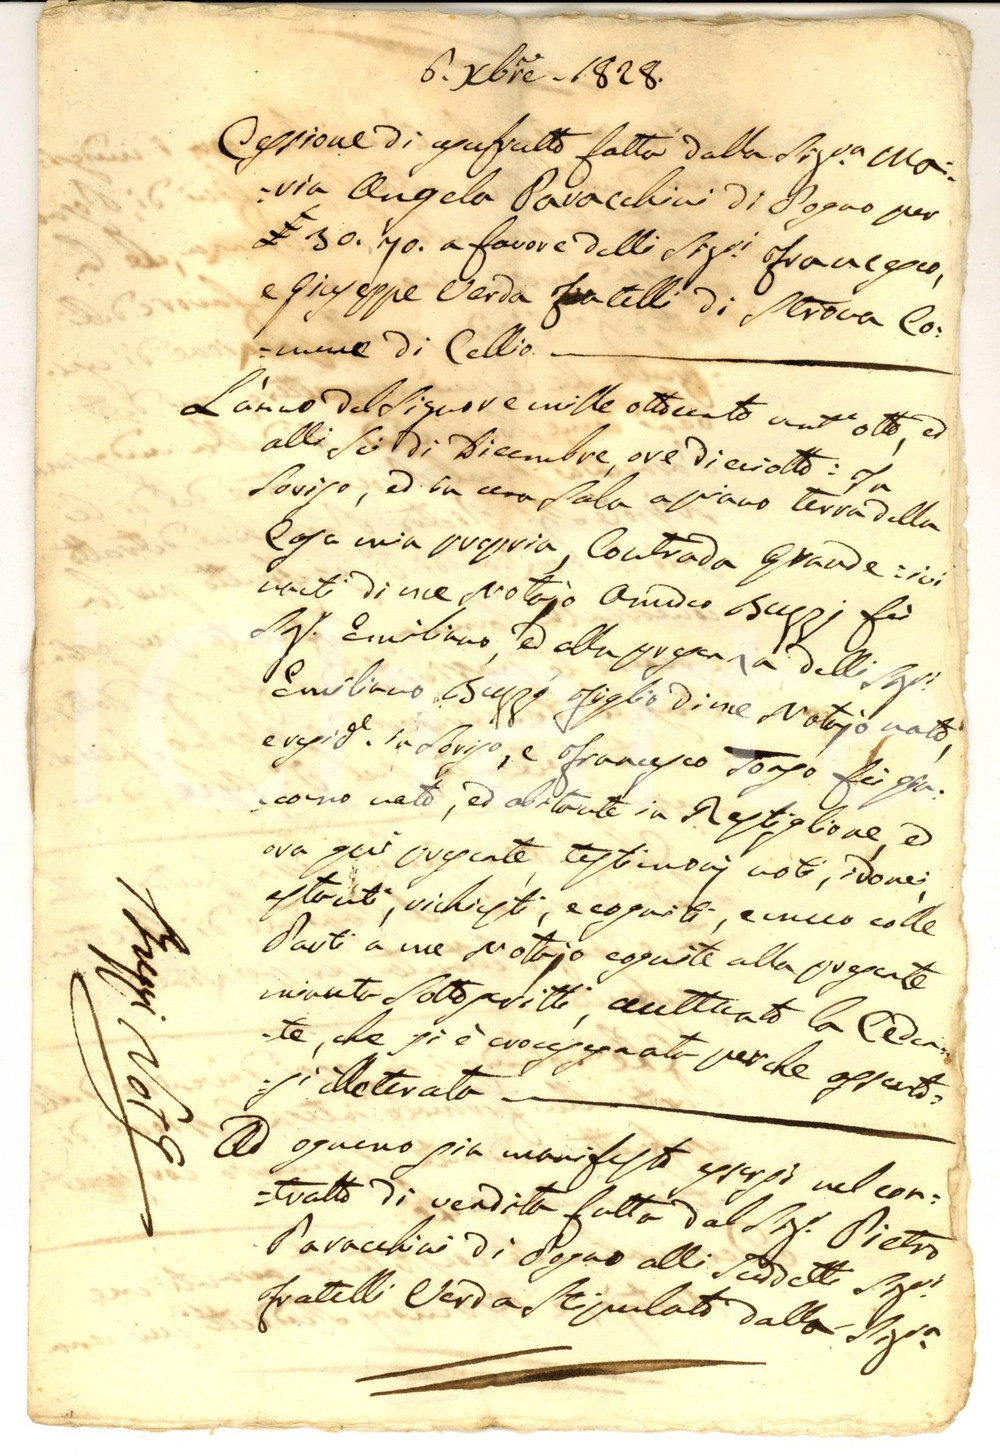 6. Xbre. 1828.
Cessione di usufrutto fatta dalla Sig.ra Ma=
=ria Angela Pavacchini di Pogno per
£ 30. 70. a favore delli Sig.ri Francesco,
e Giuseppe Verda fratelli di Strova Co=
=mune di Cellio.
L'anno del Signore mille ottocento vent'otto, ed
alli Sei di Dicembre, ore dieciotto: In
Soriso, ed in una Sala a piano terra della
Casa mia propria, Contrada Grande: ivi
nanti di me Notajo Amedeo Buzzi fù
Sig.r Emiliano, ed alla presenza delli Sig.ri
Emiliano Buzzi figlio di me Notajo nato,
e resid.e in Soriso, e Francesco Tonso fù Gia=
=como nato, ed abitante in Rastiglione, ed
ora qui presente, testimonj noti, idonei,
astanti, richiesti, e cogniti, e meco colle
Parti a me Notajo cognite alla presente
minuta Sottoscritti, eccettuato la Ceden=
=te, che si è crocesegnata perche asserto=
=si illeterata
Ad ognuno sia manifesto essersi nel con=
=tratto di vendita fatta dal Sig.r Pietro
Pavacchini di Pogno alli suddetti Sig.ri
fratelli Verda Stipulato dalla Sig.ra
Buzzi Not.o